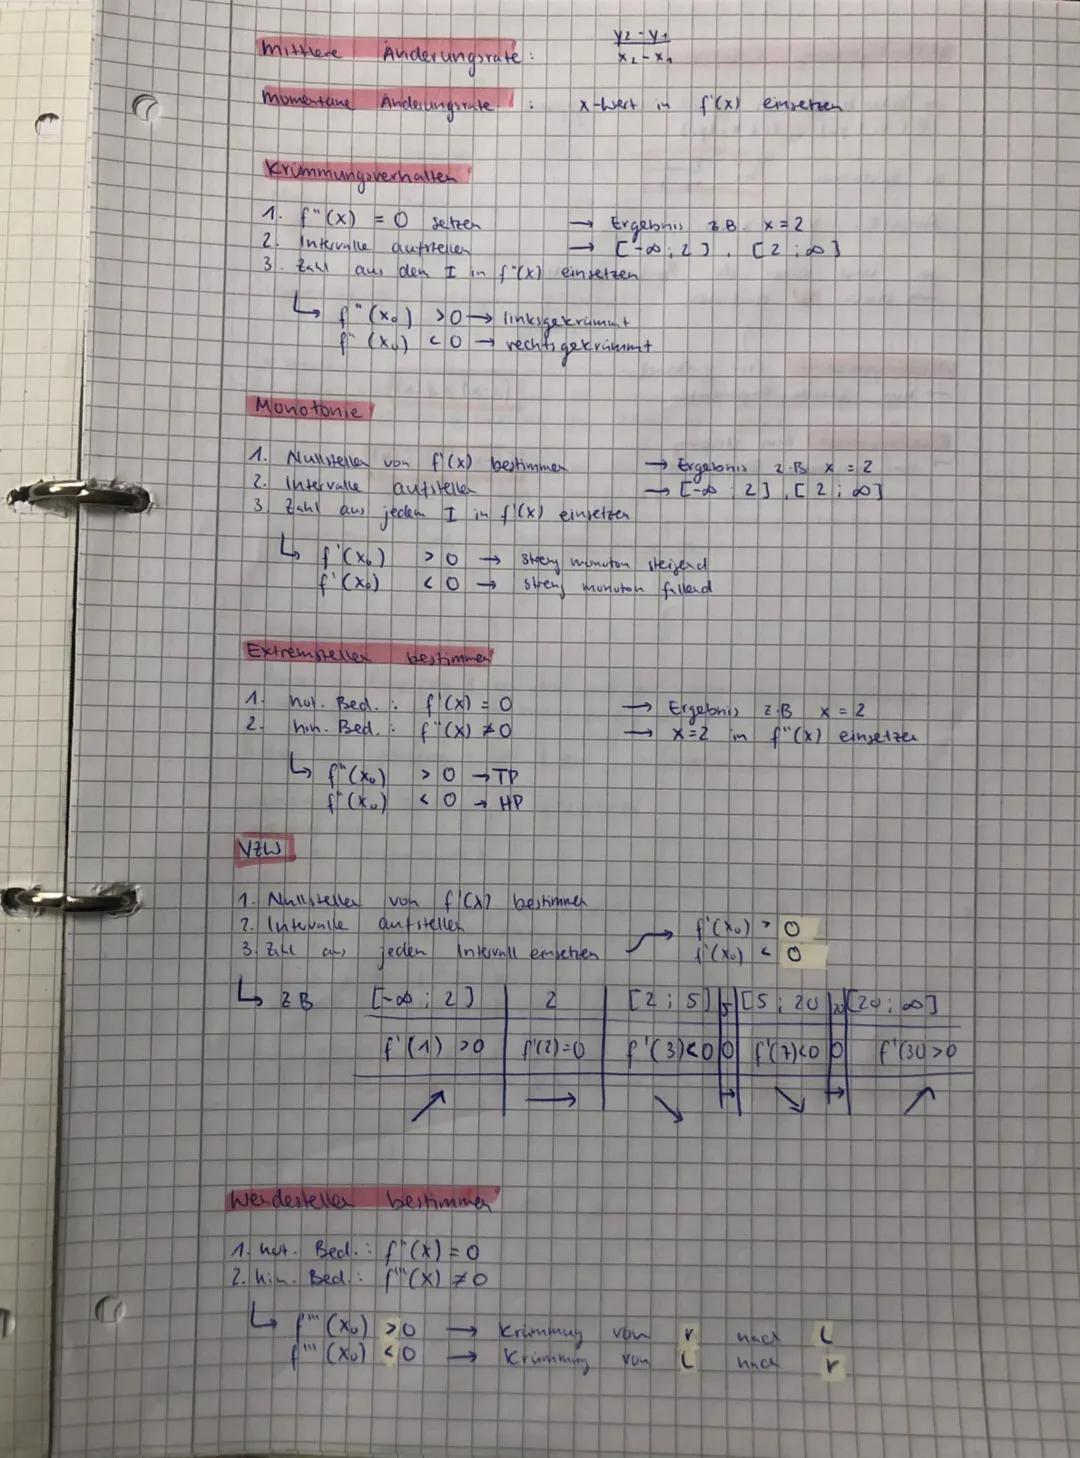 Mittlere Änderungsrate: y2-y1 / x2-x1
Momentane Änderungsrate : x-Wert in f'(x) einsetzen
Krümmungsverhalten
1. f"(x) = 0 setzen → Ergebnis z.B. x=2
2. Intervalle aufstellen → [-∞; 2], [2; ∞]
3. Zahl aus dem I in f"(x) einsetzen
↳ f"(x0) >0 → linksgekrümmt
f"(x0) <0 → rechtsgekrümmt
Monotonie
1. Nullstellen von f'(x) bestimmen → Ergebnis z.B x = 2
2. Intervalle aufstellen → [-∞; 2], [2; ∞]
3. Zahl aus jedem I in f'(x) einsetzen
↳ f'(x0) > 0 → streng monoton steigend
f'(x0) < 0 → streng monoton fallend
Extremstellen bestimmen
1. not. Bed.: f'(x) = 0 → Ergebnis z.B x = 2
2. hin. Bed.: f"(x) ≠ 0 → x=2 in f"(x) einsetzen
↳ f"(x0) > 0 → TP
f"(x0) < 0 → HP
VZW
1. Nullstellen von f'(x) bestimmen
2. Intervalle aufstellen f'(x0) > 0
3. Zahl aus jeden Intervall einsetzen f'(x0) < 0
↳ z B [-∞; 2] 2 [2; 5] 5 [5; 20 20 [20; ∞]
f'(1) >0 f'(2)=0 f'(3)<0 0 f'(7)<0 0 f'(30)>0
↗ → ↘ → ↘ → ↗
Wendestellen bestimmen
1. not. Bed.: f"(x) = 0
2. hin. Bed.: f'''(x) ≠ 0
↳ f'''(x0) >0 → Krümmung von r nach L
f'''(x0) <0 → Krümmung von L nach r